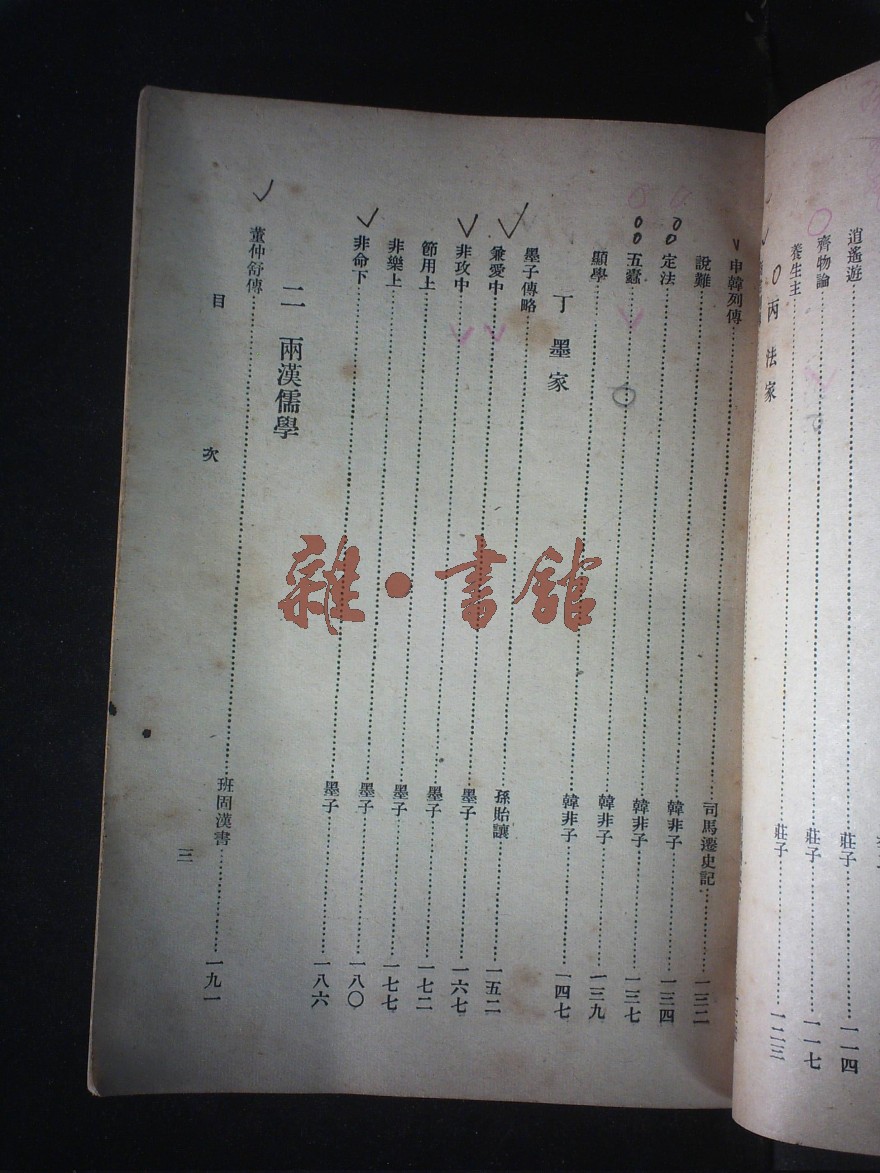 逍遙遊……莊子……一一四
齊物論……莊子……一一七
養生主……莊子……一二三
丙 法家
申韓列傳……司馬遷史記……一三二
說難……韓非子……一三四
定法……韓非子……一三七
五蠹……韓非子……一三九
顯學……韓非子……一四七
丁 墨家
墨子傳略……孫貽讓……一五二
兼愛中……墨子……一六七
非攻中……墨子……一七二
節用上……墨子……一七七
非樂上……墨子……一八〇
非命下……墨子……一八六
二 兩漢儒學
董仲舒傳……班固漢書……一九一
目次 三
雜·書館